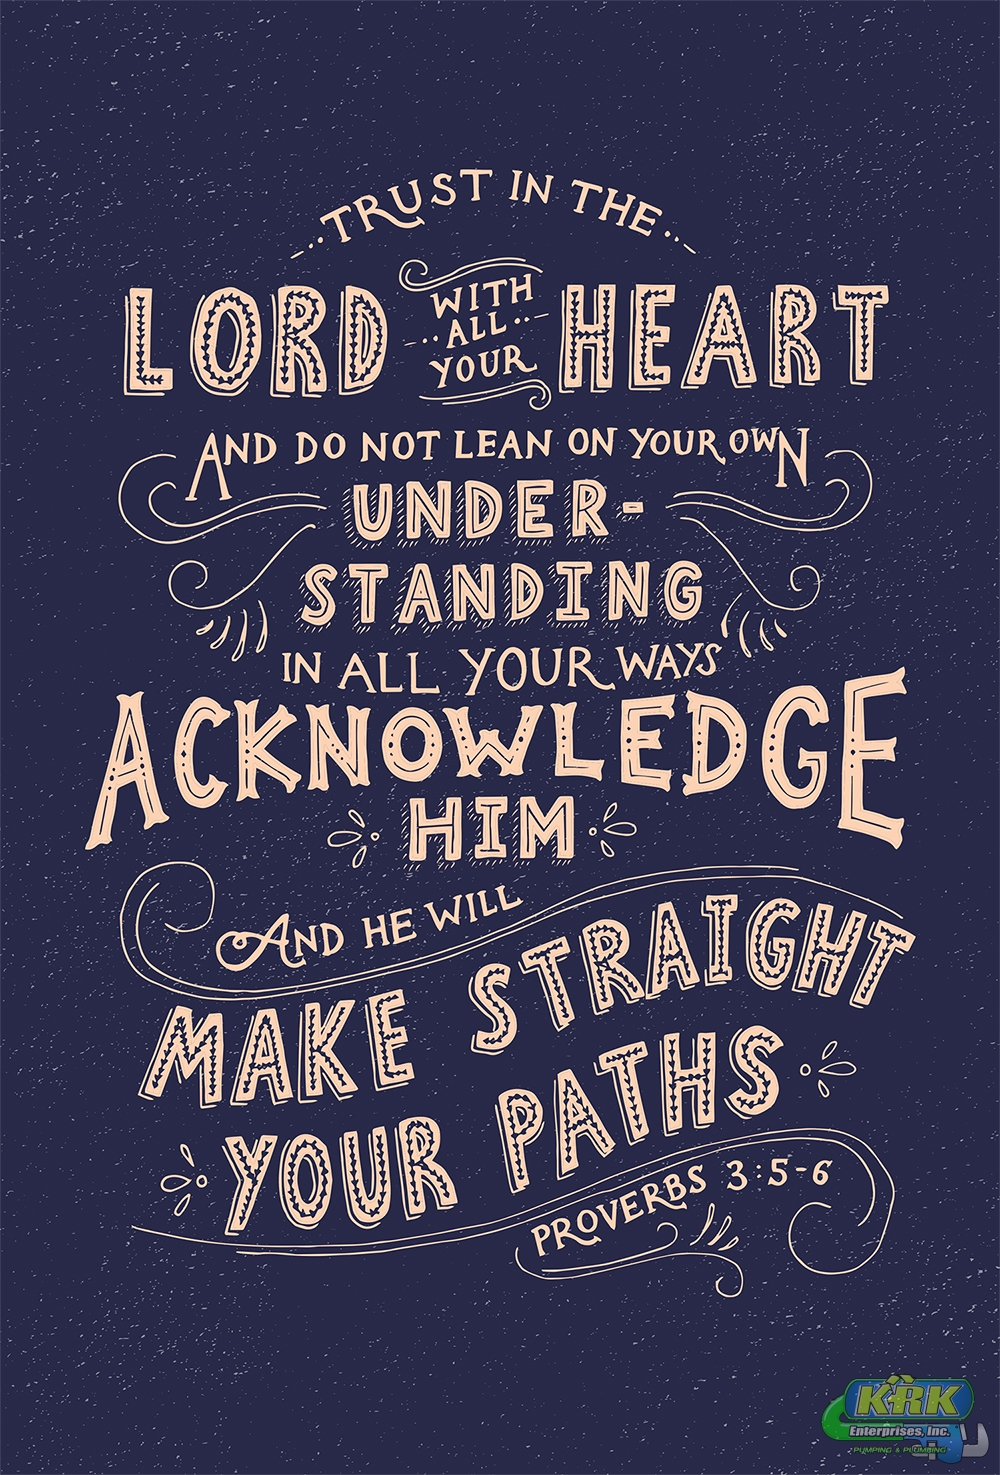 TRUST IN THE
LORD WITH ALL YOUR HEART
AND DO NOT LEAN ON YOUR OWN
UNDER-
STANDING
IN ALL YOUR WAYS
ACKNOWLEDGE
HIM
AND HE WILL
MAKE STRAIGHT
YOUR PATHS
PROVERBS 3:5-6
KRK
Enterprises, Inc.
PUMPING & PLUMBING